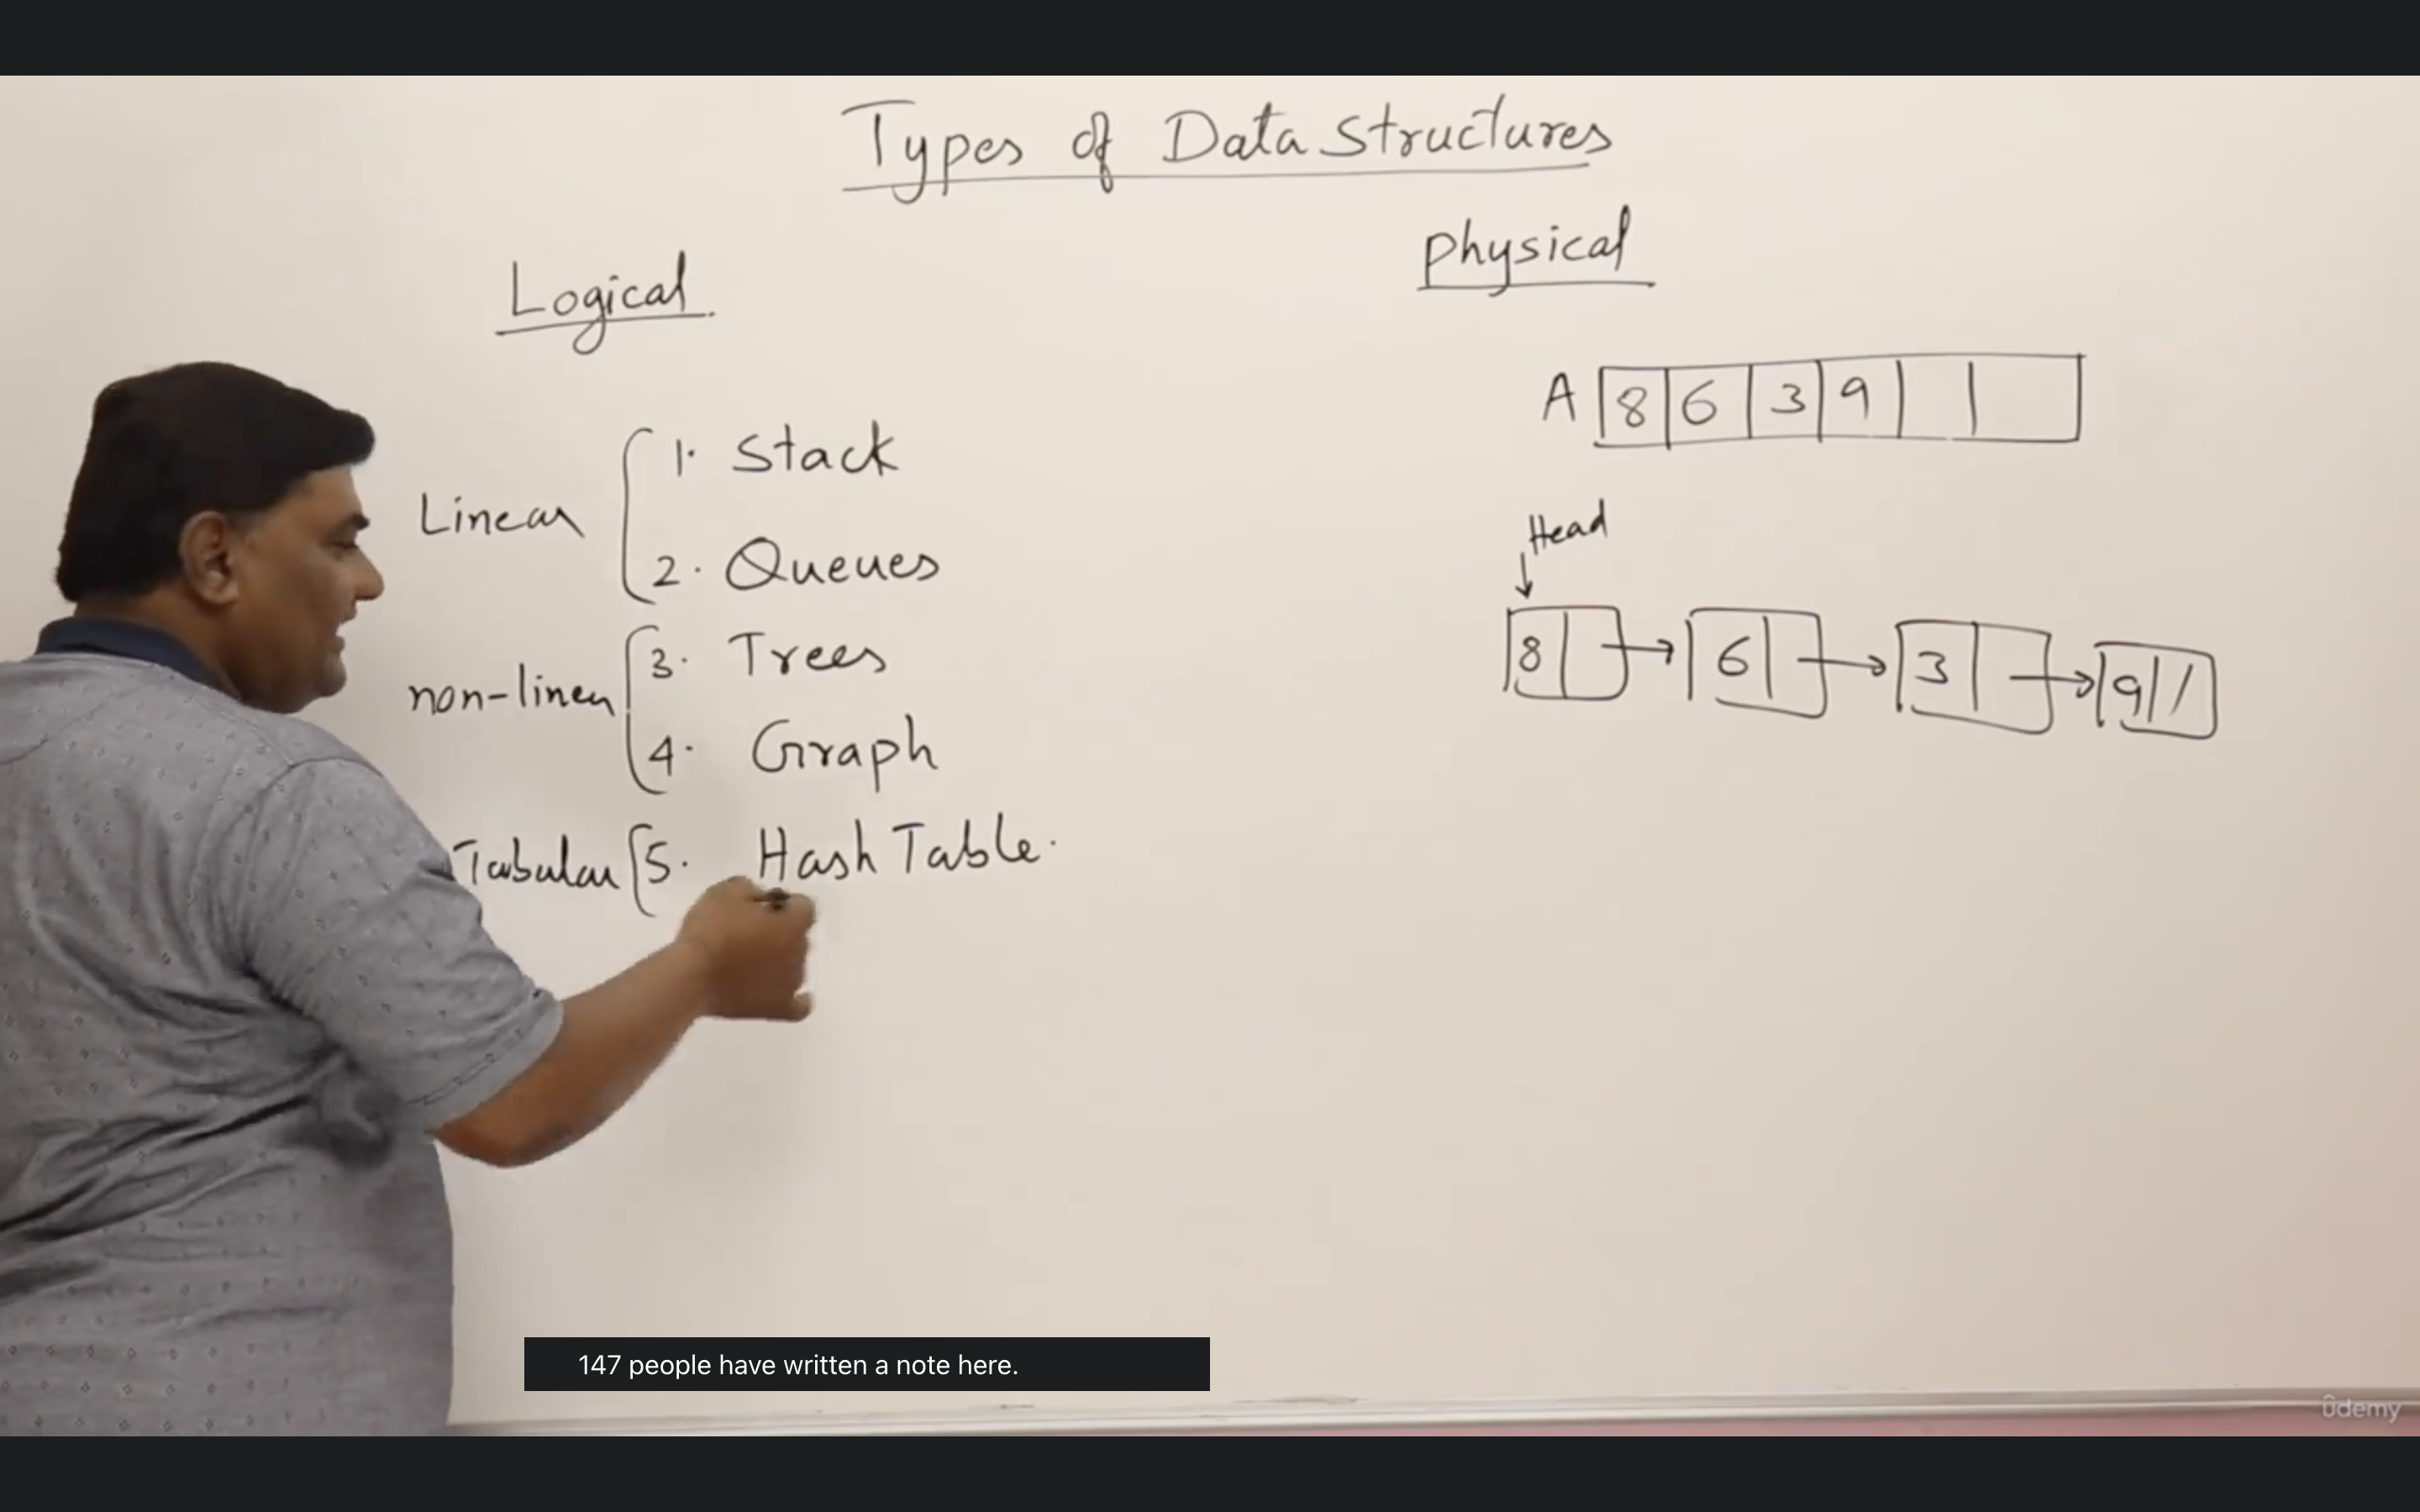 Types of Data Structures
Logical
Linear
1. Stack
2. Queues
non-linear
3. Trees
4. Graph
Tabular
5. Hash Table.
Physical
A 8 6 3 9
Head
8 6 3 9 /
147 people have written a note here.
ûdemy